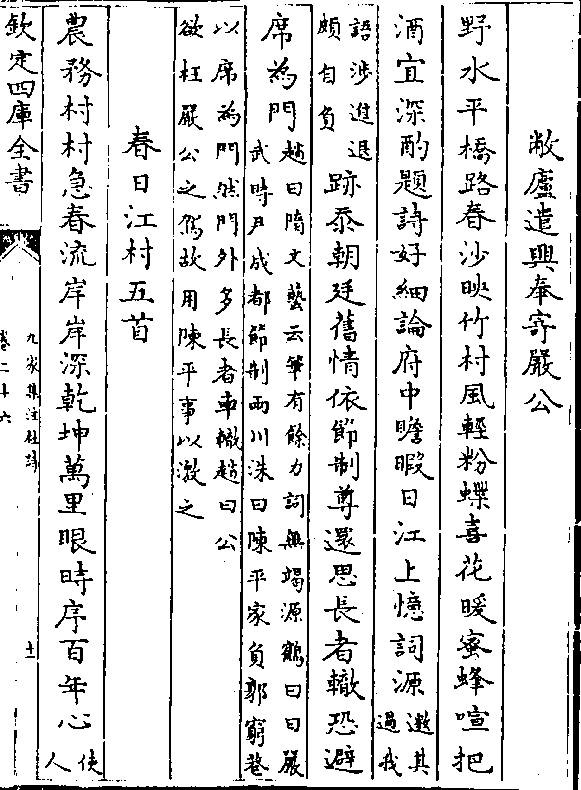 敝廬遣興奉寄嚴公
野水平橋路春沙映竹村風輕粉蝶喜花暖蜜蜂喧把
酒宜深酌題詩好細論府中瞻暇日江上憶詞源邀其
過我
語涉進退
頗自負跡忝朝廷舊情依節制尊還思長者轍恐避
席為門趙曰隋文藝云筆有餘力詞無竭源鶴曰曰嚴
武時尹成都節制兩川洙曰陳平家負郭窮巷
以席為門然門外多長者車轍趙曰公
欲枉嚴公之駕故用陳平事以激之
春日江村五首
農務村村急春流岸岸深乾坤萬里眼時序百年心使
人
欽定四庫全書
九家集注杜詩
卷二十六
十一